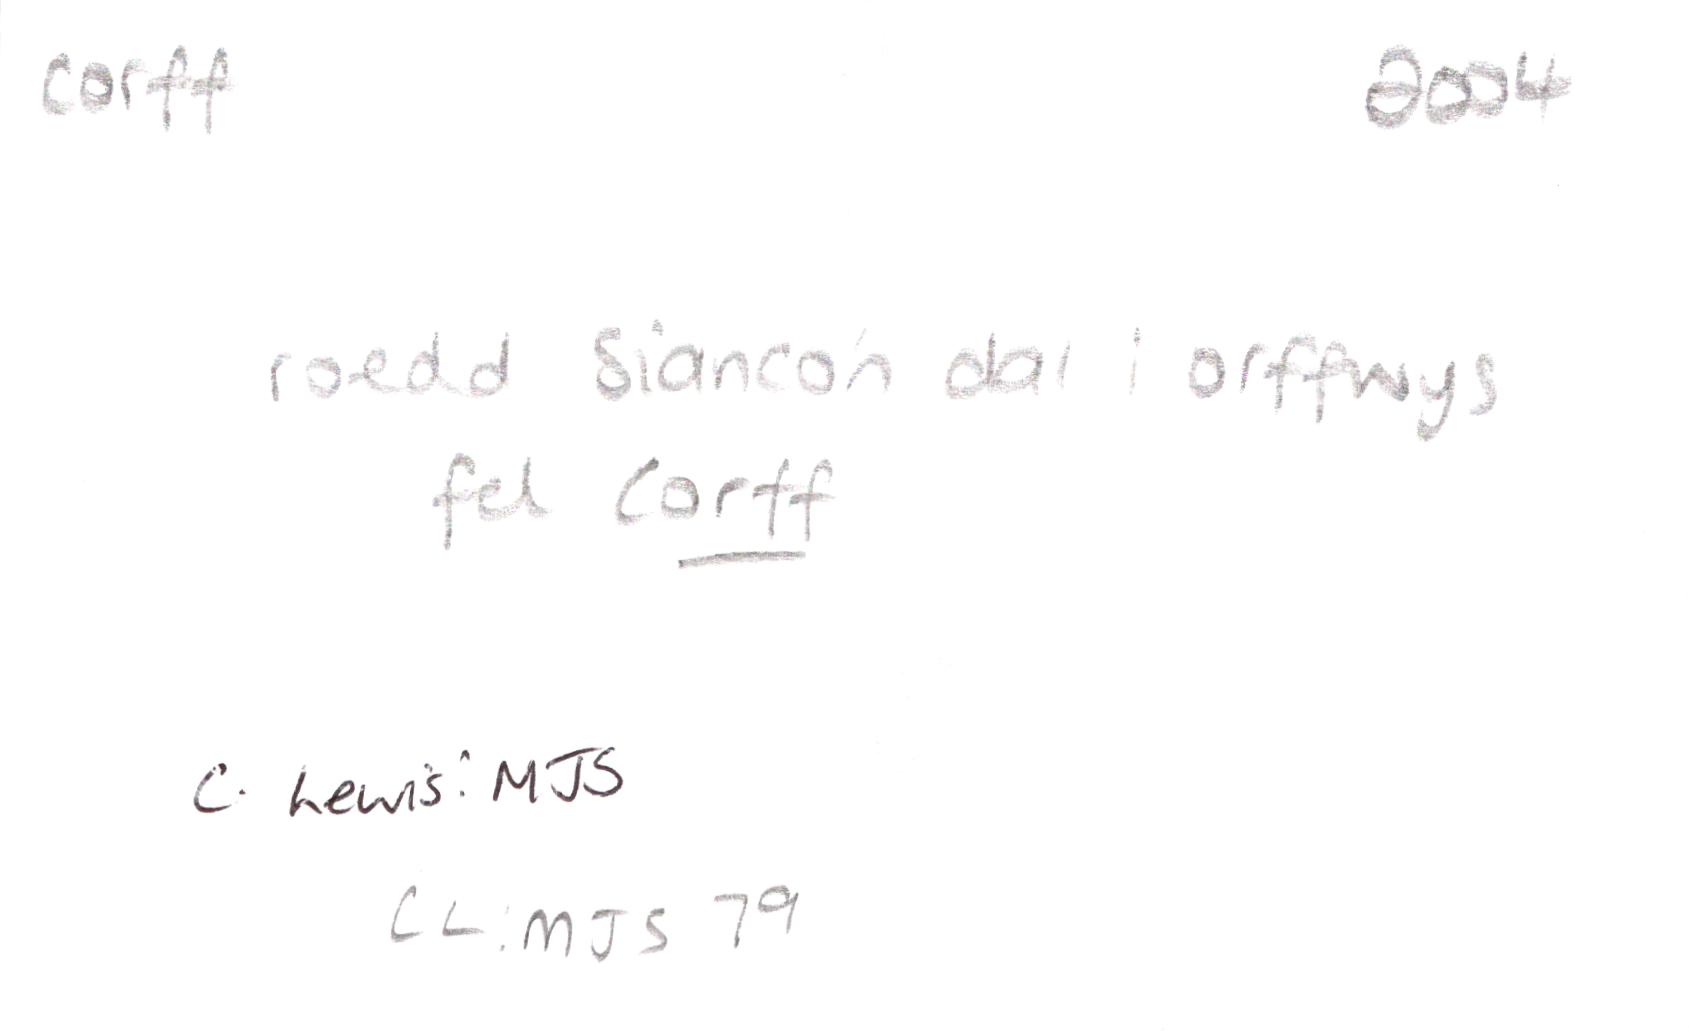 corff 2004
roedd Sianco'n dal i orffwys
fel corff
C. Lewis: MJS
CL: MJS 79